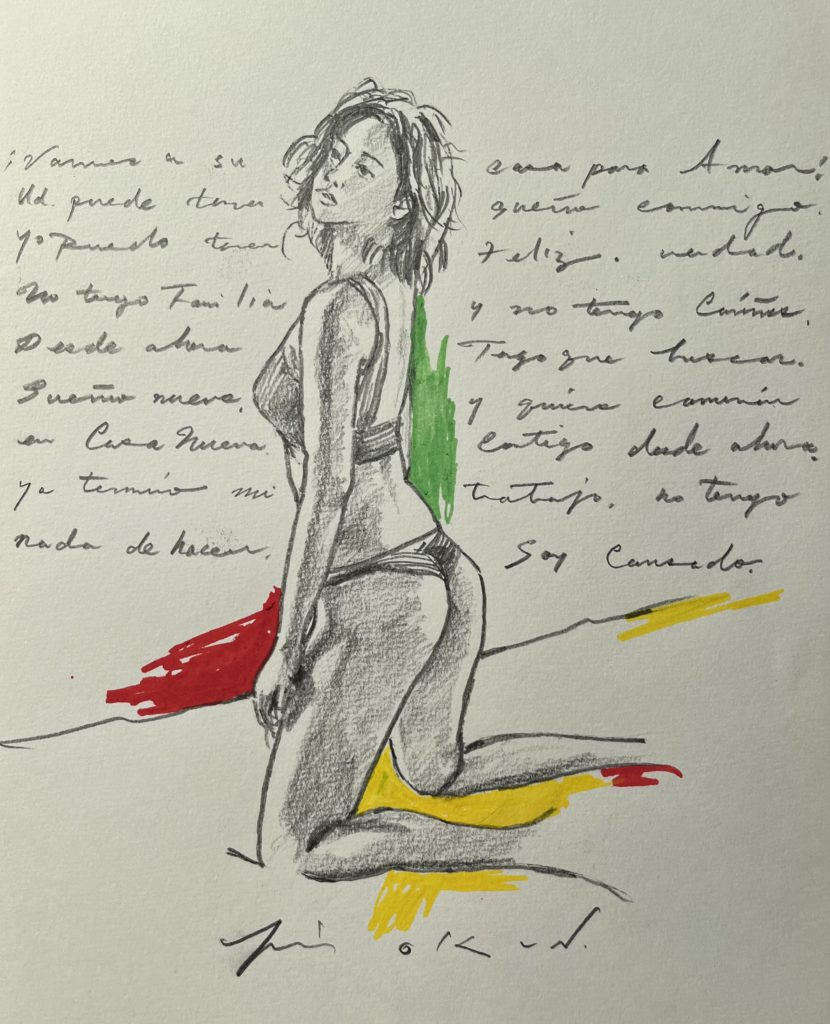 ¡Vamos a su casa para Amor!
Ud. puede tener sueño conmigo.
yo puedo tener Feliz. verdad.
No tengo Familia y no tengo
Desde ahora Tngo que buscar.
Sueño nueva. y quiero
en Casa Nueva. Contigo desde ahora.
ya termino mi trabajo. no tengo
nada de hacer. Soy Cansado.